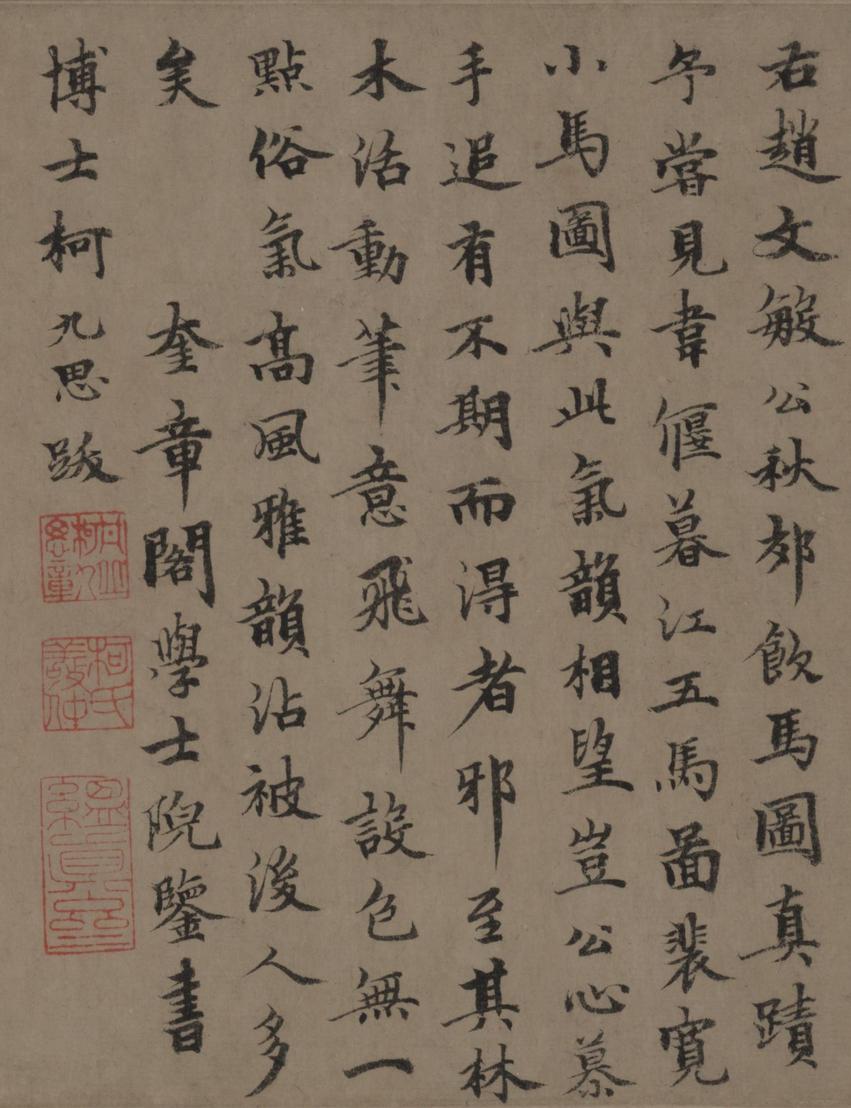 右趙文敏公秋郊飲馬圖真蹟
予嘗見韋偃暮江五馬圖裴寬
小馬圖與此氣韻相望豈公心慕
手追有不期而得者邪至其林
木活動筆意飛舞設色無一
點俗氣高風雅韻沾被後人多
矣 奎章閣學士院鑒書
博士柯九思跋
柯氏敬仲
縕真齋